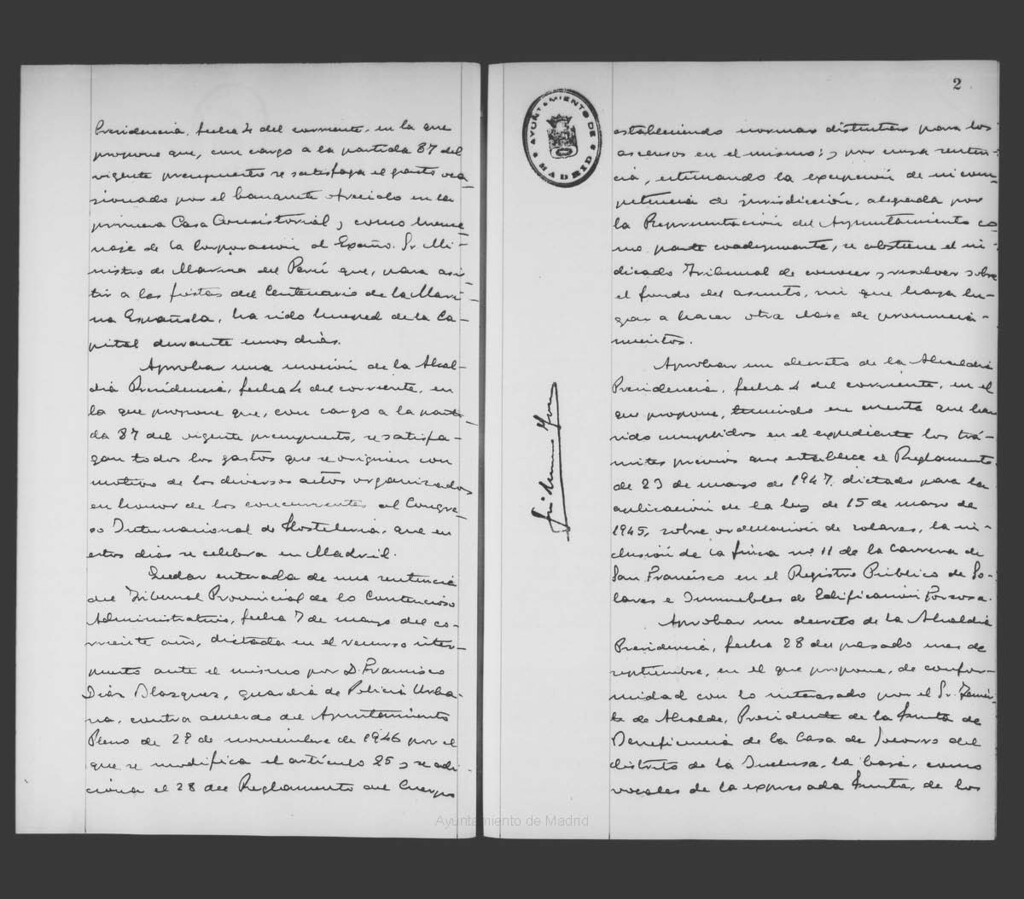 Presidencia, fecha 4 del corriente, en la que
propone que, con cargo a la partida 87 del
vigente presupuesto se satisfaga el gasto oca-
sionado por el banquete ofrecido en la
primera Casa Consistorial, como home-
naje de la Corporación al Excmo. Sr. Mi-
nistro de Marina del Perú que, para asis-
tir a las fiestas del Centenario de la Mari-
na Española, ha sido huesped de la Ca-
pital durante unos días.
Aprobar una moción de la Alcal-
día Presidencia, fecha 4 del corriente, en
la que propone que, con cargo a la parti-
da 87 del vigente presupuesto, se satisfa-
gan todos los gastos que se originen con
motivo de los diversos actos organizados
en honor de los concurrentes al Congre-
so Internacional de Hostelería, que en
estos días se celebra en Madrid.
Quedar enterada de una sentencia
del Tribunal Provincial de lo Contencioso
Administrativo, fecha 7 de marzo del co-
rriente año, dictada en el recurso inter-
puesto ante el mismo por D. Francisco
Díaz Blazquez, guardia de Policía Urba-
na, contra acuerdo del Ayuntamiento
Pleno de 29 de noviembre de 1946 por el
que se modifica el artículo 25 y se adi-
ciona el 28 del Reglamento del Cuerpo
2
AYUNTAMIENTO DE
MADRID
estableciendo normas distintas para los
ascensos en el mismo; y por cuya senten-
cia, estimando la excepción de incom-
petencia de jurisdicción, alegada por
la Representación del Ayuntamiento co-
mo parte coadyuvante, se abstiene el in-
dicado Tribunal de conocer y resolver sobre
el fondo del asunto, sin que haya lu-
gar a hacer otra clase de pronuncia-
mientos.
Aprobar un decreto de la Alcaldía
Presidencia, fecha 4 del corriente, en el
que propone, teniendo en cuenta que han
sido cumplidos en el expediente los trá-
mites previos que establece el Reglamento
de 23 de mayo de 1947, dictado para la
aplicación de la ley de 15 de mayo de
1945, sobre ordenación de solares, la in-
clusión de la finca nº 11 de la Carrera de
San Francisco en el Registro Público de So-
lares e Inmuebles de Edificación Forzosa.
Aprobar un decreto de la Alcaldía
Presidencia, fecha 28 del pasado mes de
septiembre, en el que propone, de confor-
midad con lo interesado por el Sr. Tenien-
te de Alcalde, Presidente de la Junta de
Beneficencia de la Casa de Socorro del
distrito de la Inclusa, la baja, como
vocales de la expresada Junta, de los
Ayuntamiento de Madrid